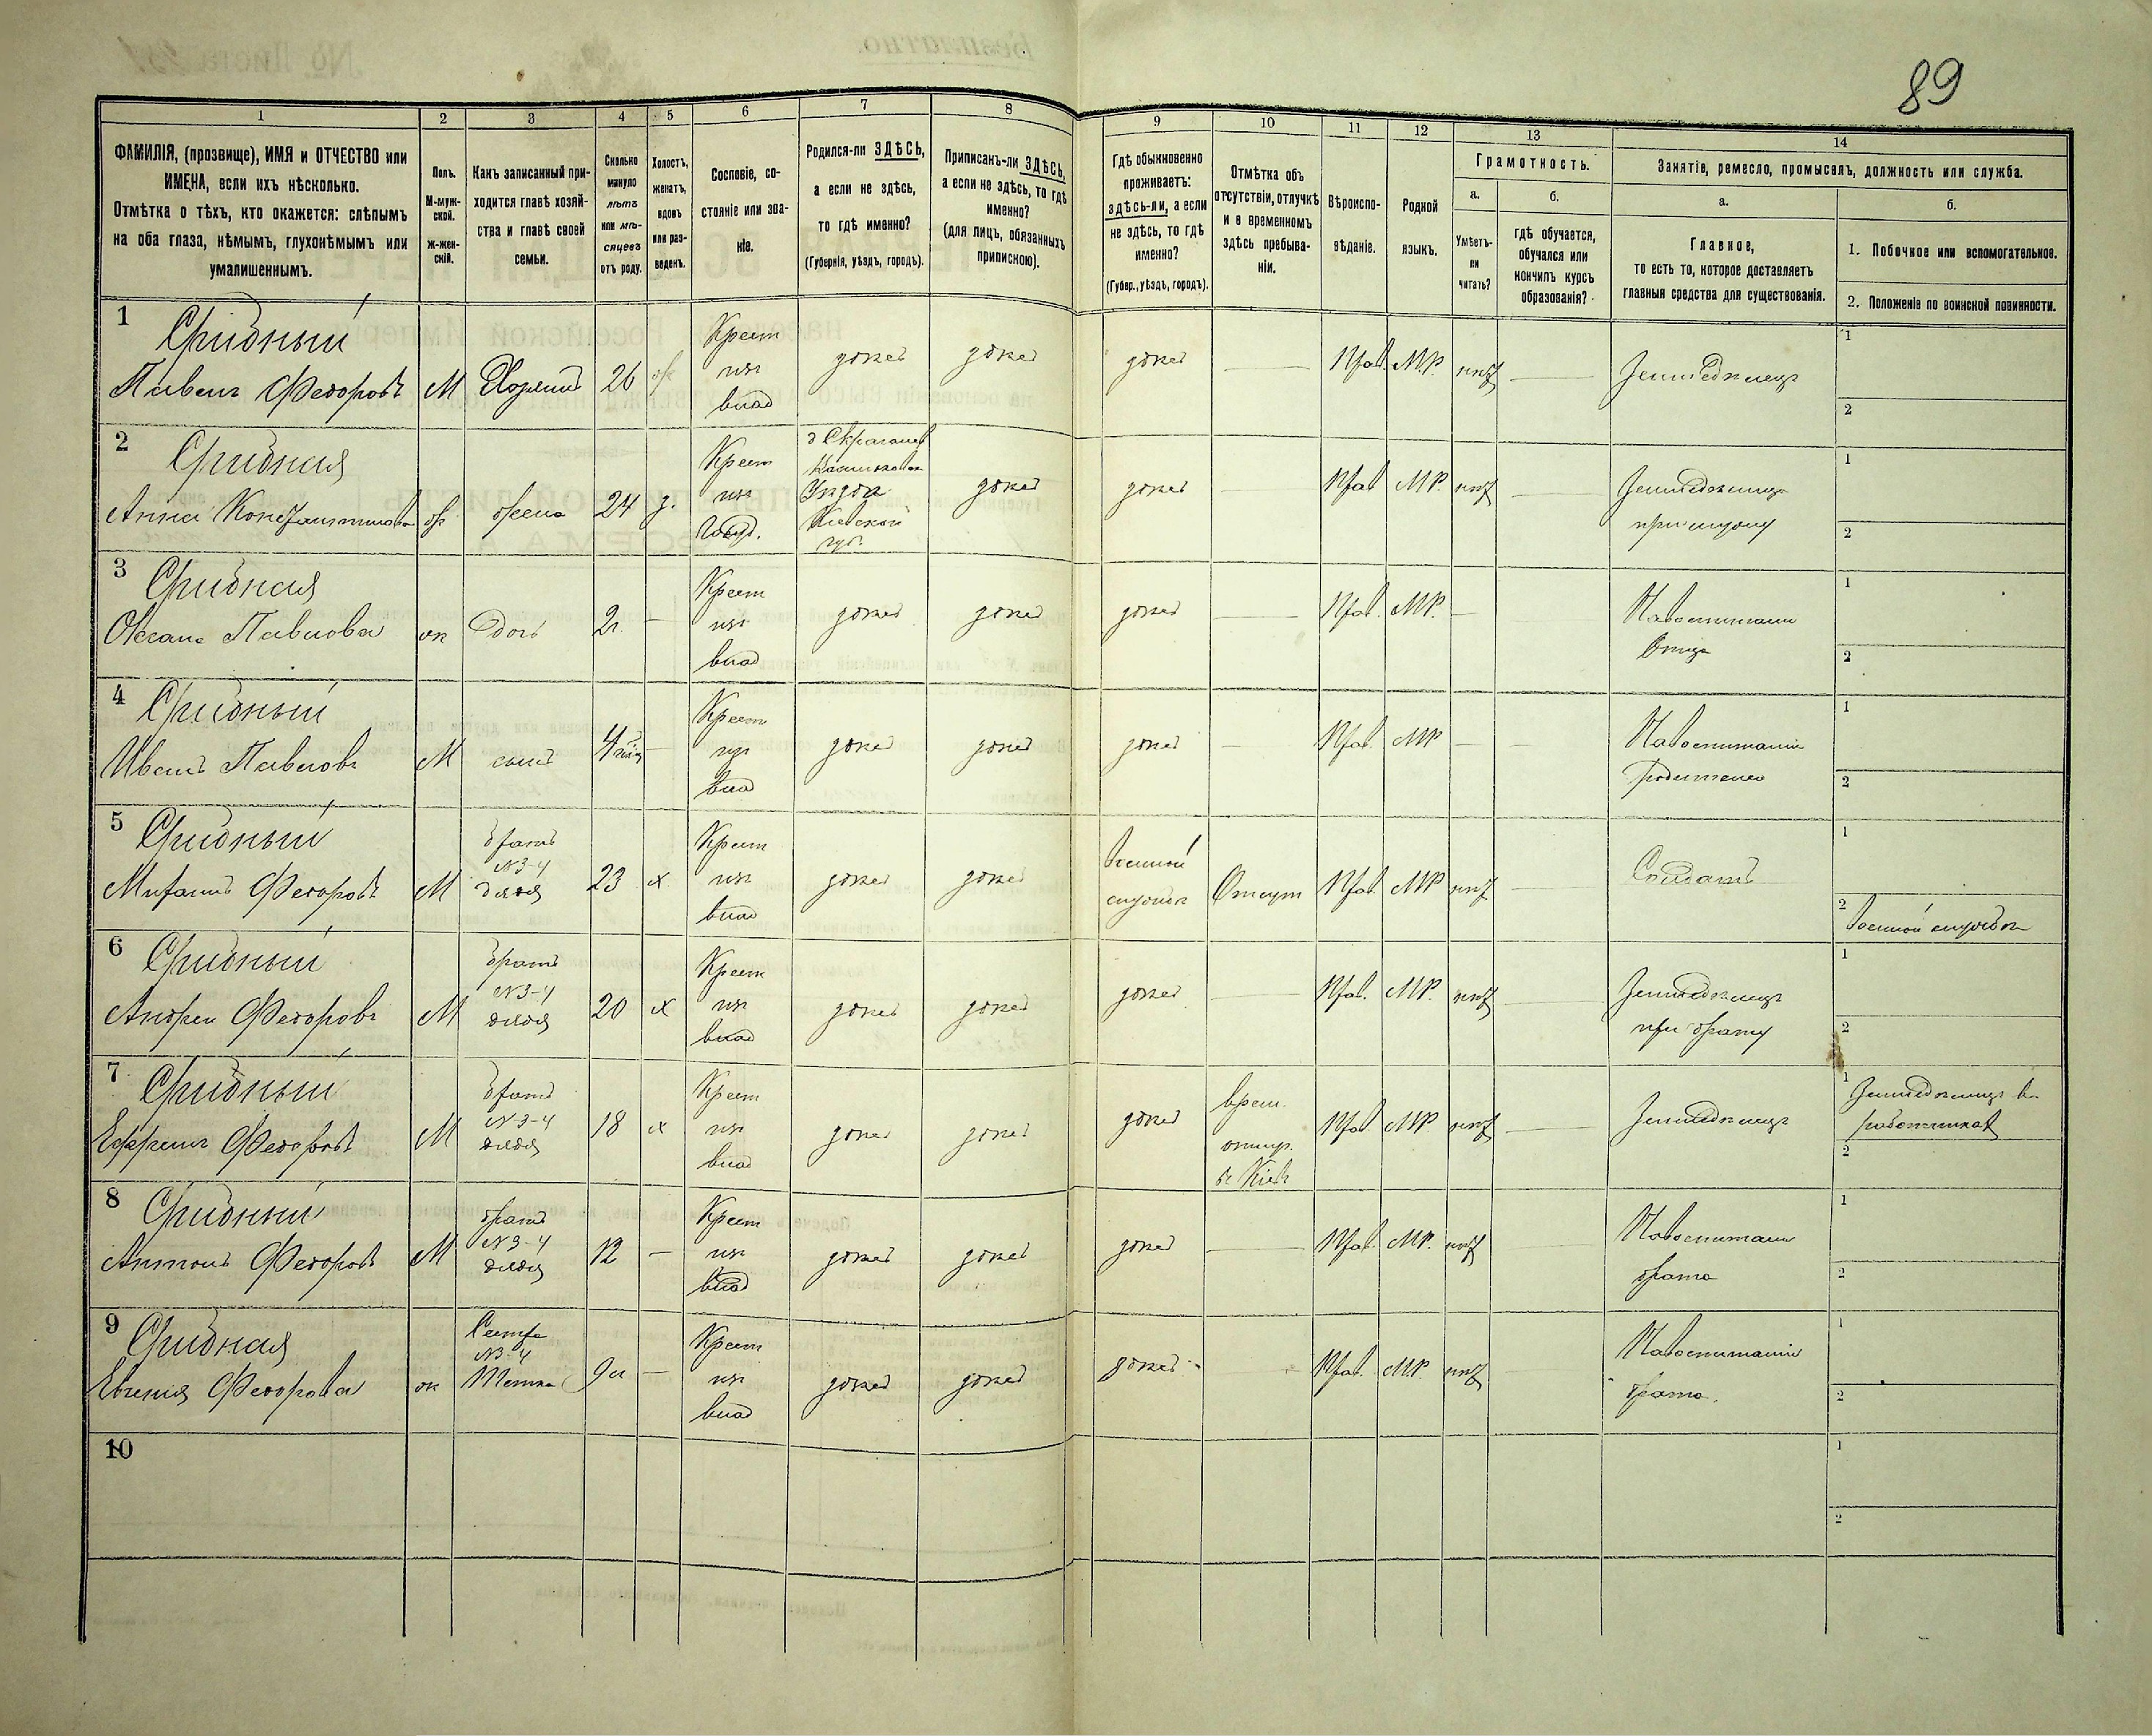 89
1 2 3 4 5 6 7 8 9 10 11 12 13 14
ФАМИЛІЯ, (прозвище), ИМЯ и ОТЧЕСТВО или
ИМЕНА, если ихъ нѣсколько.
Отмѣтка о тѣхъ, кто окажется: слѣпымъ
на оба глаза, нѣмымъ, глухонѣмымъ или
умалишеннымъ.
Полъ.
М-муж-
ской.
Ж-жен-
скій.
Какъ записанный при-
ходится главѣ хозяй-
ства и главѣ своей
семьи.
Сколько
минуло
лѣтъ
или мѣ-
сяцевъ
отъ роду.
Холостъ,
женатъ,
вдовъ
или раз-
веденъ.
Сословіе, со-
стояніе или зва-
ніе.
Родился-ли ЗДѢСЬ,
а если не здѣсь,
то гдѣ именно?
(Губернія, уѣздъ, городъ).
Приписанъ-ли ЗДѢСЬ,
а если не здѣсь, то гдѣ
именно?
(для лицъ, обязанныхъ
припискою).
Гдѣ обыкновенно
проживаетъ:
здѣсь-ли, а если
не здѣсь, то гдѣ
именно?
(Губер., уѣздъ, городъ).
Отмѣтка объ
отсутствіи, отлучкѣ
и о временномъ
здѣсь пребыва-
ніи.
Вѣроиспо-
вѣданіе.
Родной
языкъ.
Грамотность.
а.
Умѣетъ-
ли
читать?
б.
гдѣ обучается,
обучался или
кончилъ курсъ
образованія?
Занятіе, ремесло, промыселъ, должность или служба.
а.
Главное,
то есть то, которое доставляетъ
главныя средства для существованія.
б.
1. Побочное или вспомогательное.
2. Положеніе по воинской повинности.
1
Павелъ Федоровъ М Хозяинъ 26 ж
Крест
изъ
влад
здѣсь здѣсь здѣсь — Прав. МР. нѣт — Земледѣлецъ
1
2
2
Анна Константинова ж жена 24 з.
Крест
изъ
Госуд.
Уѣзда
Кіевской
губ.
здѣсь здѣсь — Прав МР. нѣт — Земледѣлица
при мужу
1
2
3
Оксана Павлова ж дочь 2 —
Крест
изъ
влад
здѣсь здѣсь здѣсь — Прав. МР. —
На воспитаніи
Отца
1
2
4
Иванъ Павловъ М сынъ 4 —
Крест
изъ
влад
здѣсь здѣсь здѣсь — Прав. МР —
На воспитаніи
родителей
1
2
5
Федоровъ М
братъ
№3-4
дядя
23 х
Крест
изъ
влад
здѣсь здѣсь
военной
службѣ
Отсут Прав. МР нѣт — Солдатъ
1
2
Военной службѣ
6
Андрей Федоровъ М
братъ
№3-4
дядя
20 х
Крест
изъ
влад
здѣсь здѣсь здѣсь — Прав. МР. нѣт —
Земледѣлецъ
при брату
1
2
7
Ефремъ Федоровъ М
братъ
№3-4
дядя
18 х
Крест
изъ
влад
здѣсь здѣсь здѣсь
врем.
отлуч.
въ Кіевъ
Прав МР нѣт — Земледѣлецъ
1
Земледѣлецъ въ
работникахъ
2
8
Антонъ Федоровъ М
братъ
№3-4
дядя
12 —
Крест
изъ
влад
здѣсь здѣсь здѣсь — Прав. МР. нѣт
На воспитаніи
брата
1
2
9
Евгенія Федорова ж
Сестра
№3-4
Тетка
9 —
Крест
изъ
влад
здѣсь здѣсь здѣсь Прав. МР. нѣт
На воспитаніи
брата.
1
2
10
1
2